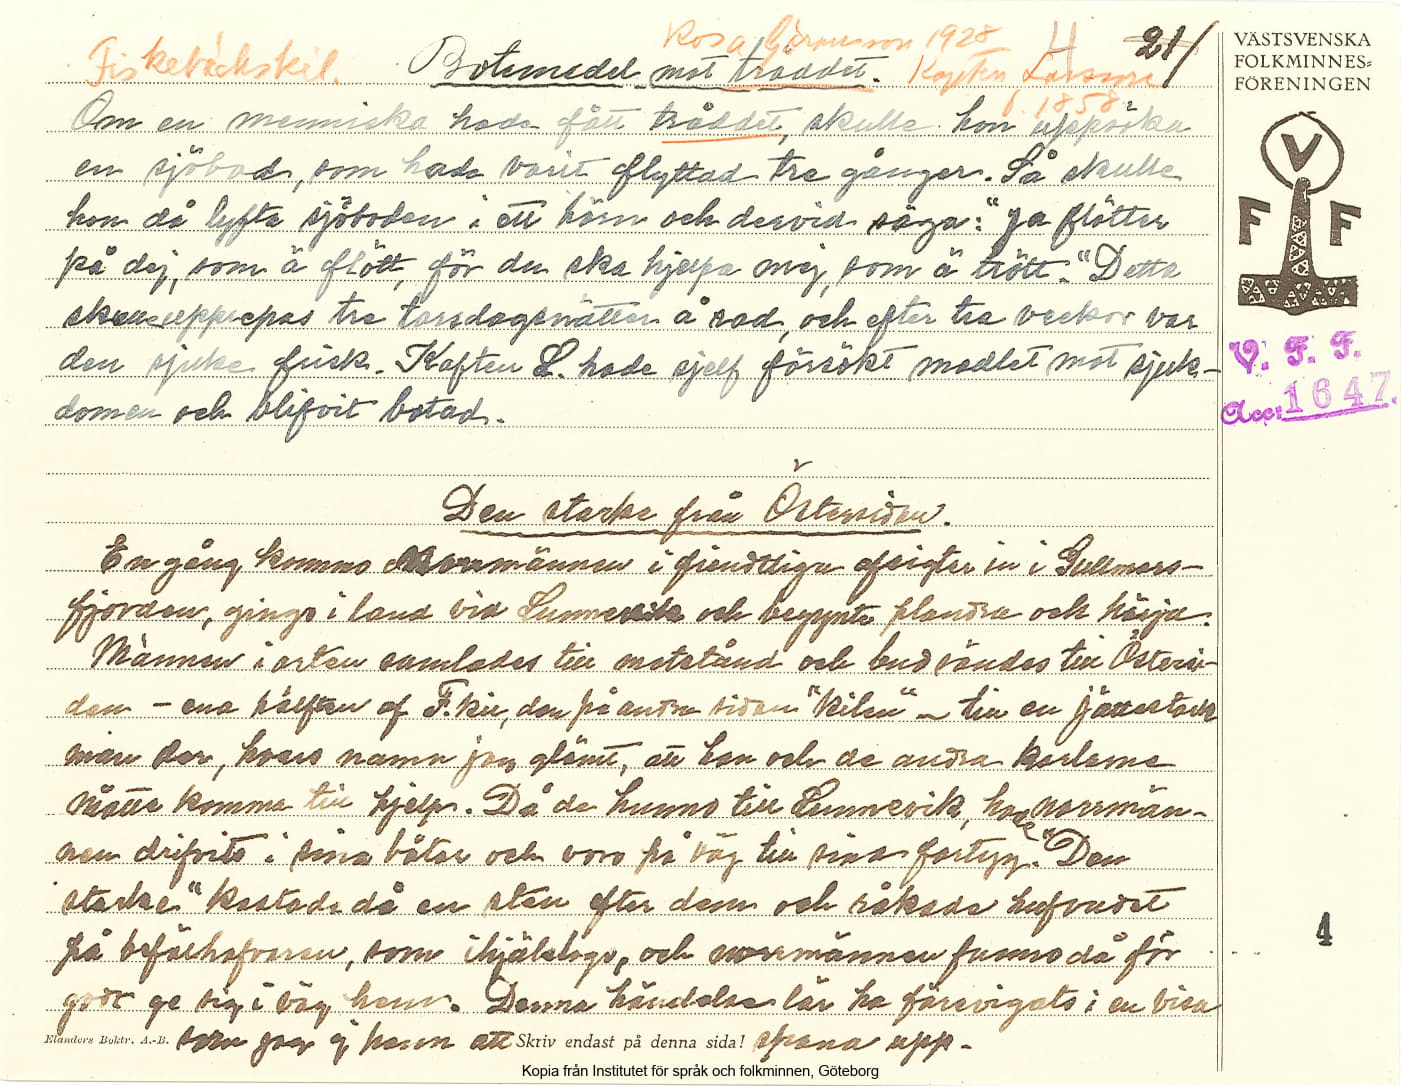 Fiskebäckskil.
Rosa Göransson 1928
Kapten Larsson
f. 1858
21/
Botemedel mot tråddet.
Om en menniska hade fått tråddet, skulle hon uppsöka
en sjöbod, som hade varit flyttad tre gånger. Så skulle
hon då lyfta sjöboden i ett hörn och dervid säga: "Ja flötter
på dej, som ä flött, för du ska hjelpa mej, som ä trött." Detta
skulle upprepas tre torsdagsnätter å rad, och efter tre veckor var
den sjuke frisk. Kapten L. hade sjelf försökt medlet mot sjuk-
domen och blifvit botad.
Den starke från Östersidan.
En gång kommo Norrmännen i fiendtliga afsigter in i Gullmars-
fjorden, gingo i land vid Lunnevik och begynte plundra och härja.
Männen i orten samlades till motstånd och bud sändes till Östersi-
dan – ena hälften af F.kil, den på andra sidan "kilen" – till en jättestark
man der, hvars namn jag glömt, att han och de andra karlarne
måtte komma till hjelp. Då de hunno till Lunnevik, hade norrmän-
nen drifvits i sina båtar och voro på väg till sina fartyg. "Den
starke" kastade då en sten efter dem och råkade hufvudet
på befälhafvaren, som ihjälslogs, och norrmännen funno då för
godt ge sig i väg hem. Denna händelse lär ha förevigats i en visa
som jag ej kunn att spana upp.
Elanders Boktr. A.-B.
Skriv endast på denna sida!
VÄSTSVENSKA
FOLKMINNES-
FÖRENINGEN
V
F F
V. F. F.
Acc: 1647.
4
Kopia från Institutet för språk och folkminnen, Göteborg